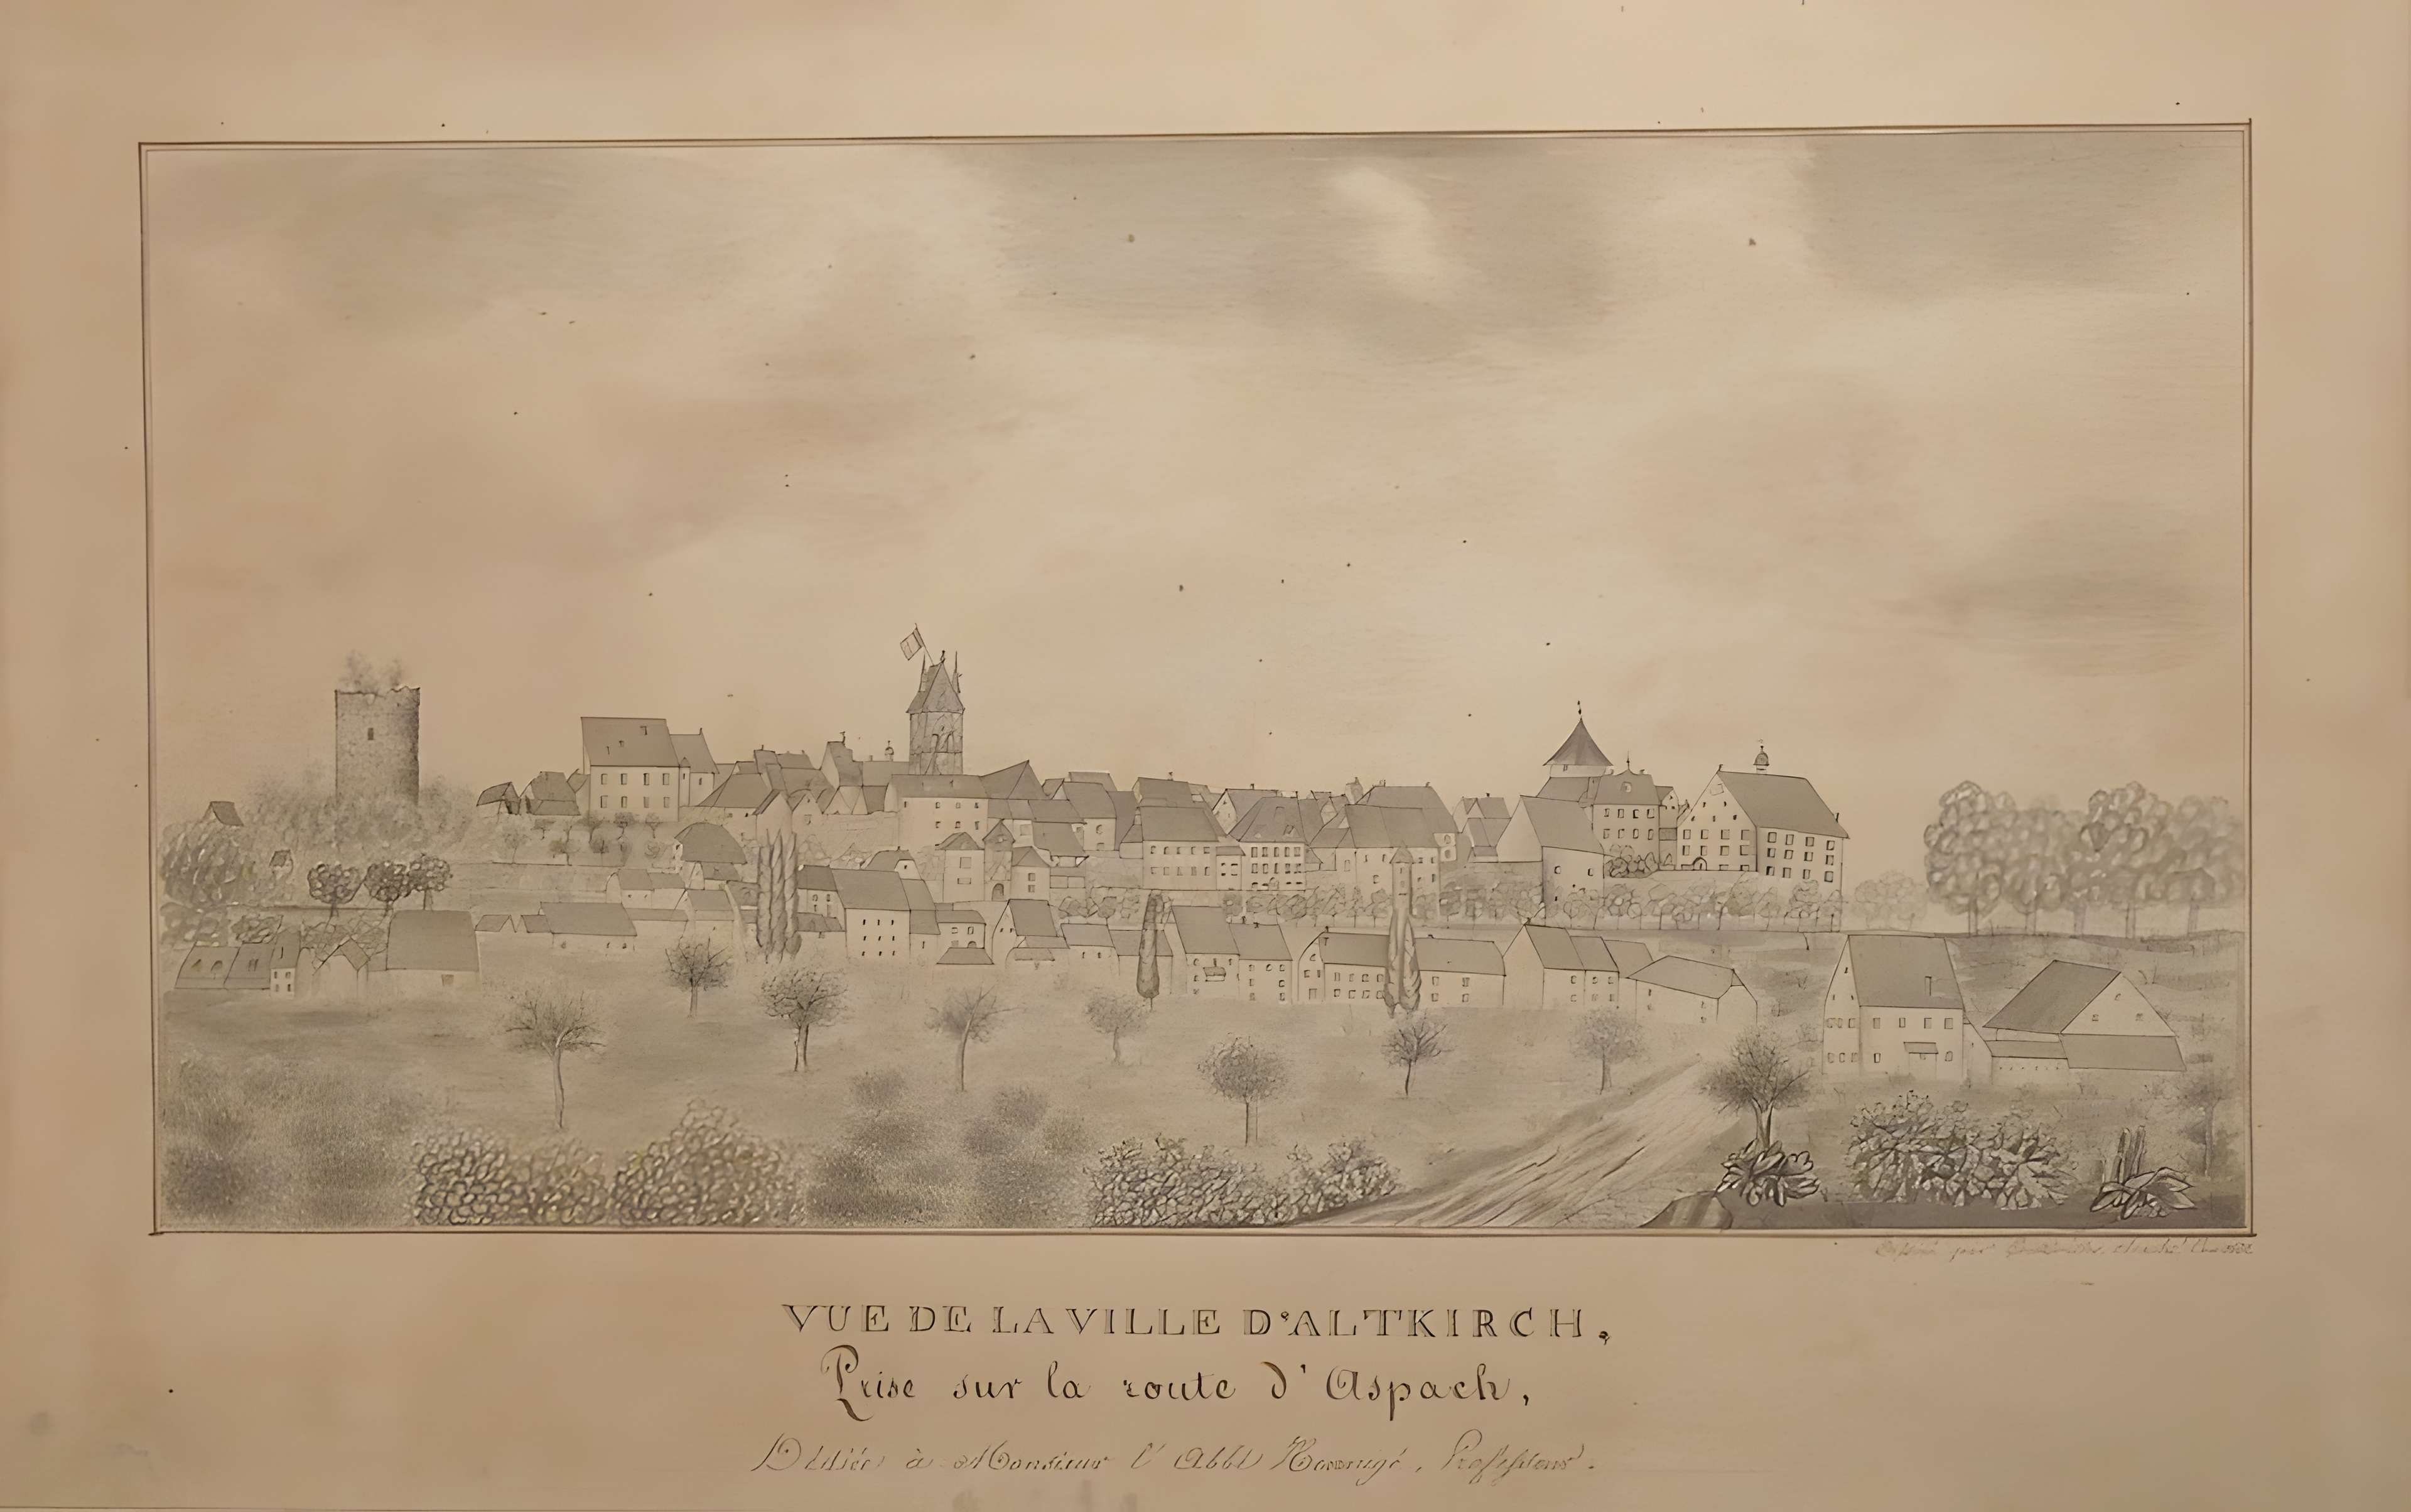 Dessiné par
VUE DE LA VILLE D'ALTKIRCH,
Prise sur la route d'Aspach,
Dédiée à Monsieur l'Abbé Professeur.